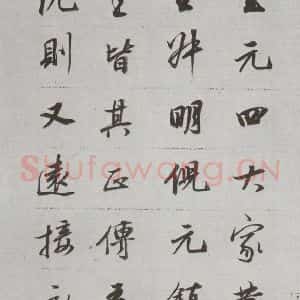 元四大家黃
王叔明倪元鎮
圭皆其正傳吾
沈則又遠接衣
Shufawang.CN